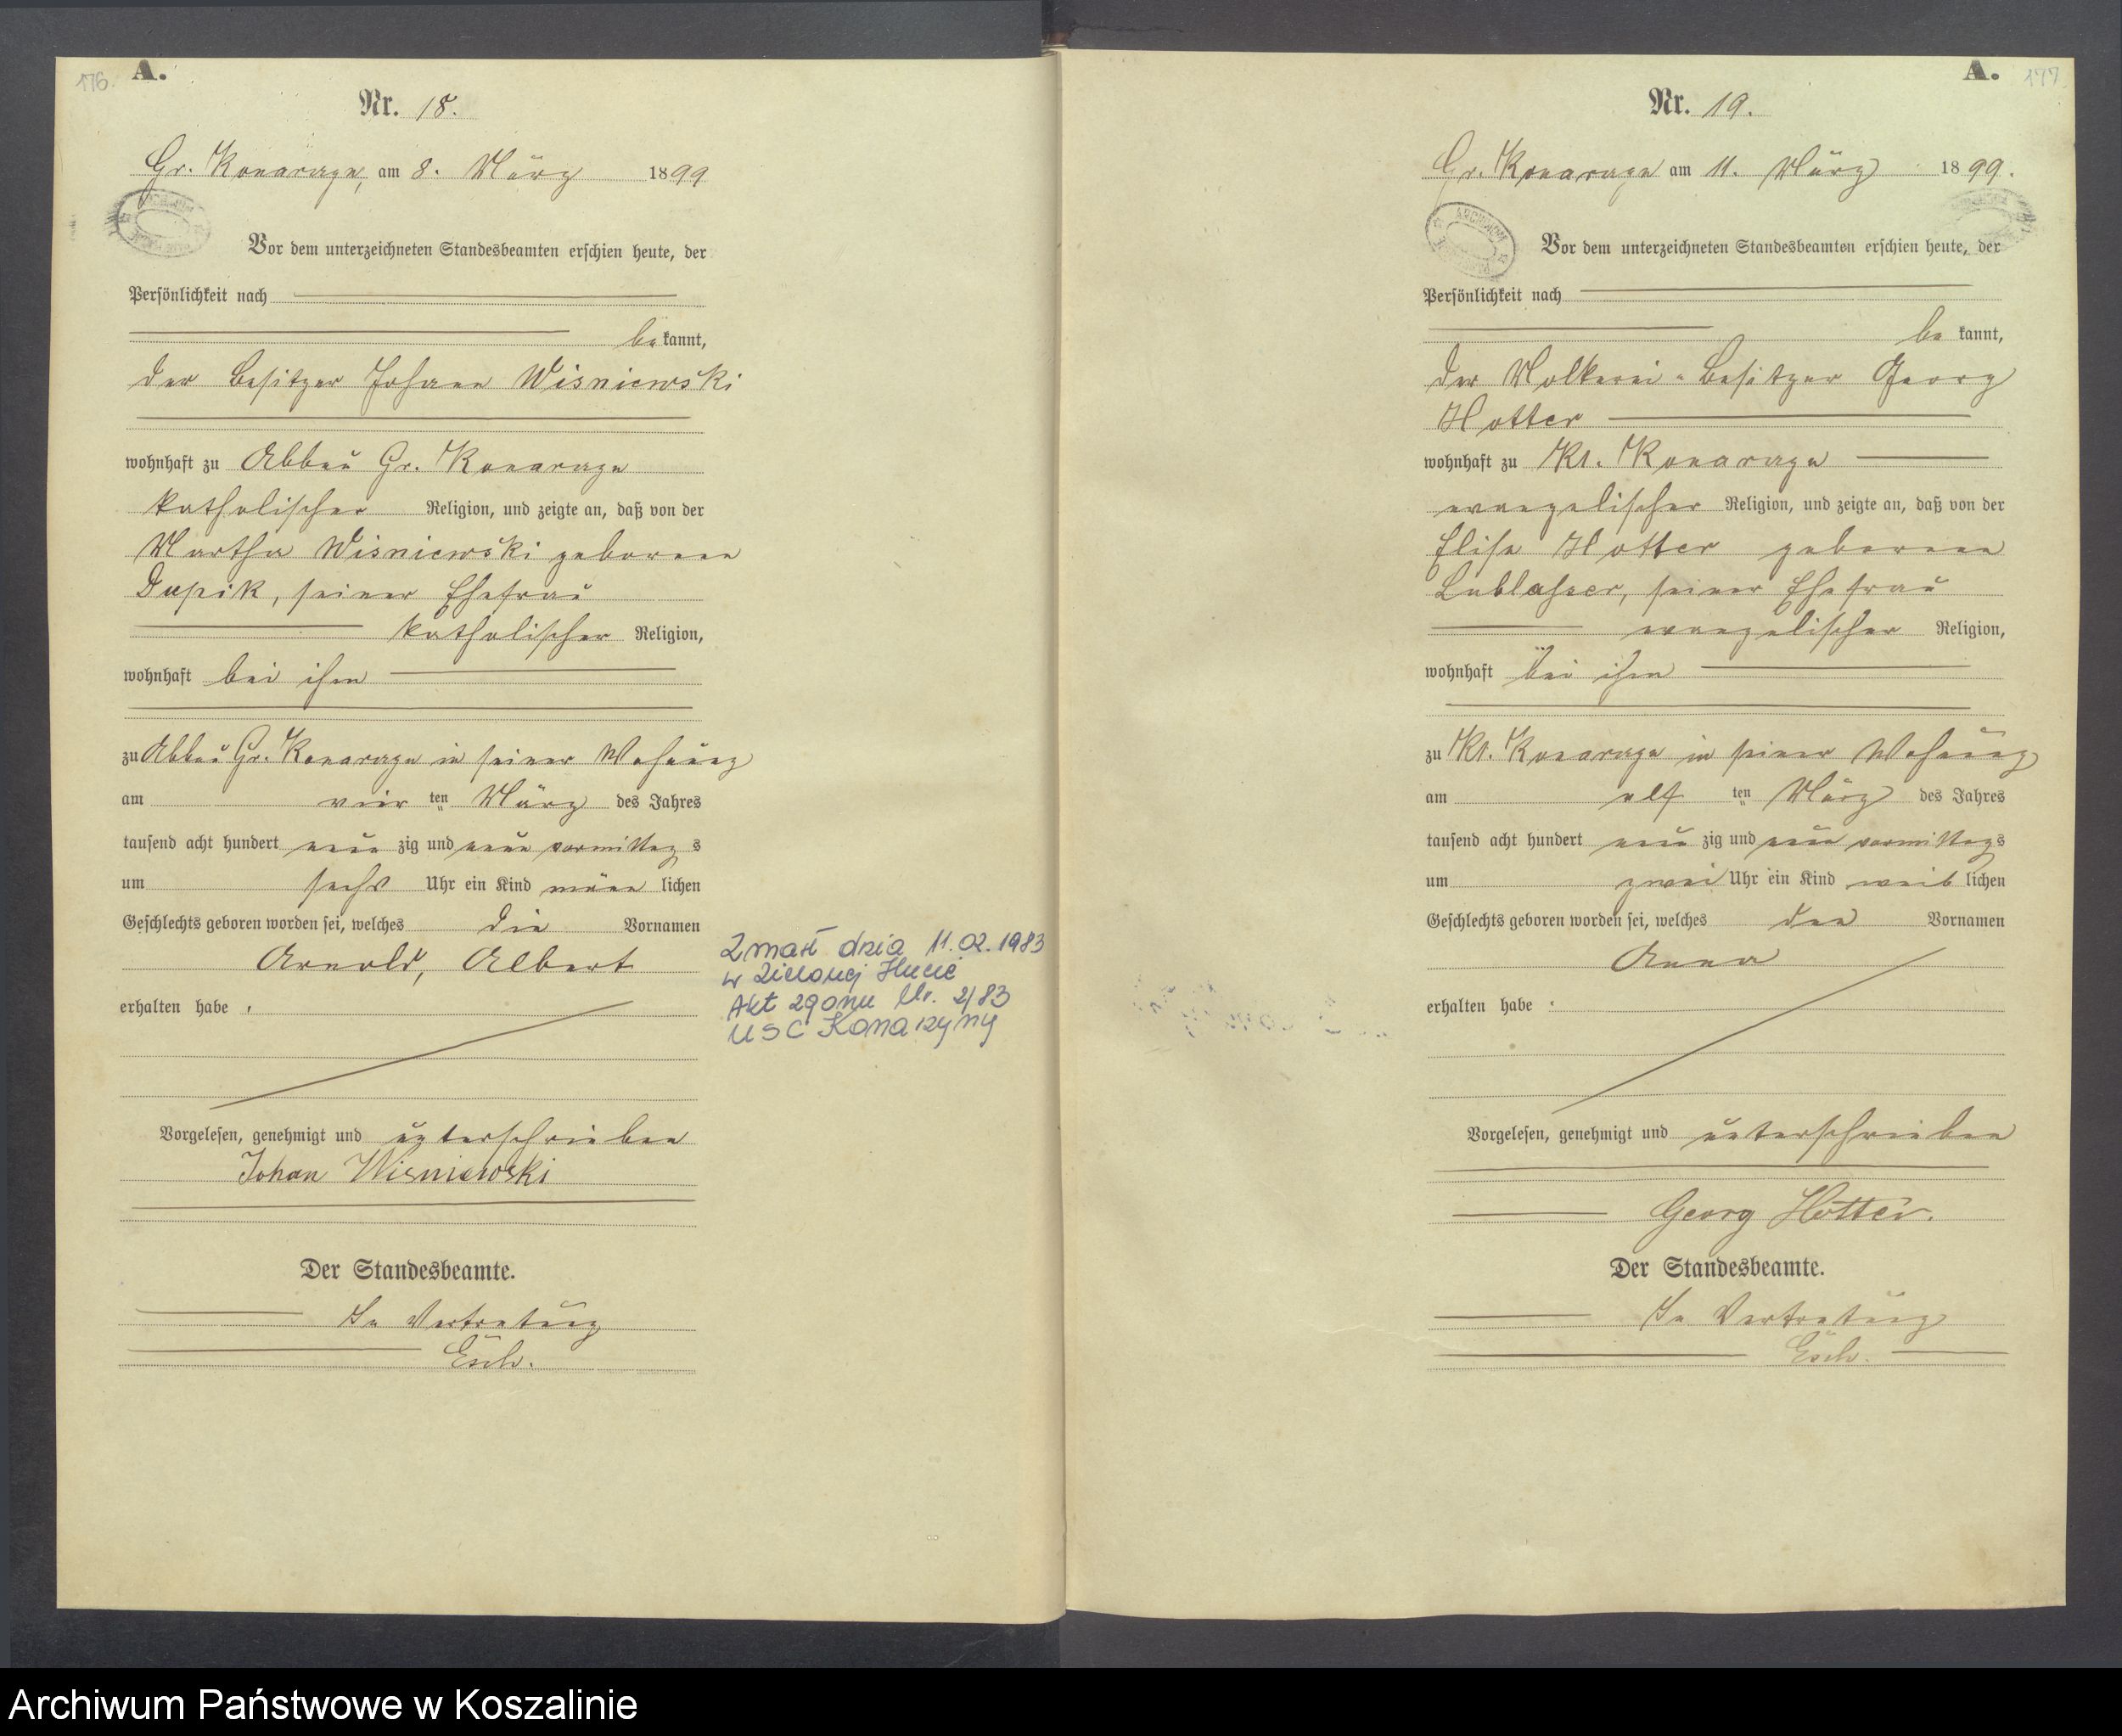 176.
A.
Nr. 18.
Gr. Konarczyn, am 8. März 1899
Vor dem unterzeichneten Standesbeamten erschien heute, der
Persönlichkeit nach
bekannt,
der Besitzer Johann Wisniewski
wohnhaft zu Abbau Gr. Konarczyn
katholischer Religion, und zeigte an, daß von der
Martha Wisniewski geborenen
seiner Ehefrau
katholischer Religion,
wohnhaft bei ihm
zu Abbau Gr. Konarczyn in seiner Wohnung
am vier ten März des Jahres
tausend acht hundert neun zig und neun vormittag s
um sechs Uhr ein Kind männ lichen
Geschlechts geboren worden sei, welches die Vornamen
Arnold, Albert
erhalten habe.
Vorgelesen, genehmigt und unterschrieben
Johan Wisniewski
Der Standesbeamte.
In Vertretung
Esch.
Zmarł dnia 11.02.1983
w Zielonej Hucie
Akt zgonu Nr. 2/83
USC Konarzyny
A.
177
Nr. 19.
Gr. Konarczyn am 11. März 1899.
ARCHIWUM
Vor dem unterzeichneten Standesbeamten erschien heute, der
Persönlichkeit nach
be kannt,
der Molkerei-Besitzer Georg
Hotter
wohnhaft zu Kl. Konarczyn
evangelischer Religion, und zeigte an, daß von der
Elise Hotter geborenen
seiner Ehefrau
evangelischer Religion,
wohnhaft bei ihm
zu Kl. Konarczyn in seiner Wohnung
am elf ten März des Jahres
tausend acht hundert neun zig und neun vormittags
um zwei Uhr ein Kind weib lichen
Geschlechts geboren worden sei, welches den Vornamen
Anna
erhalten habe.
Vorgelesen, genehmigt und unterschrieben
Georg Hotter.
Der Standesbeamte.
In Vertretung
Esch.
Archiwum Państwowe w Koszalinie